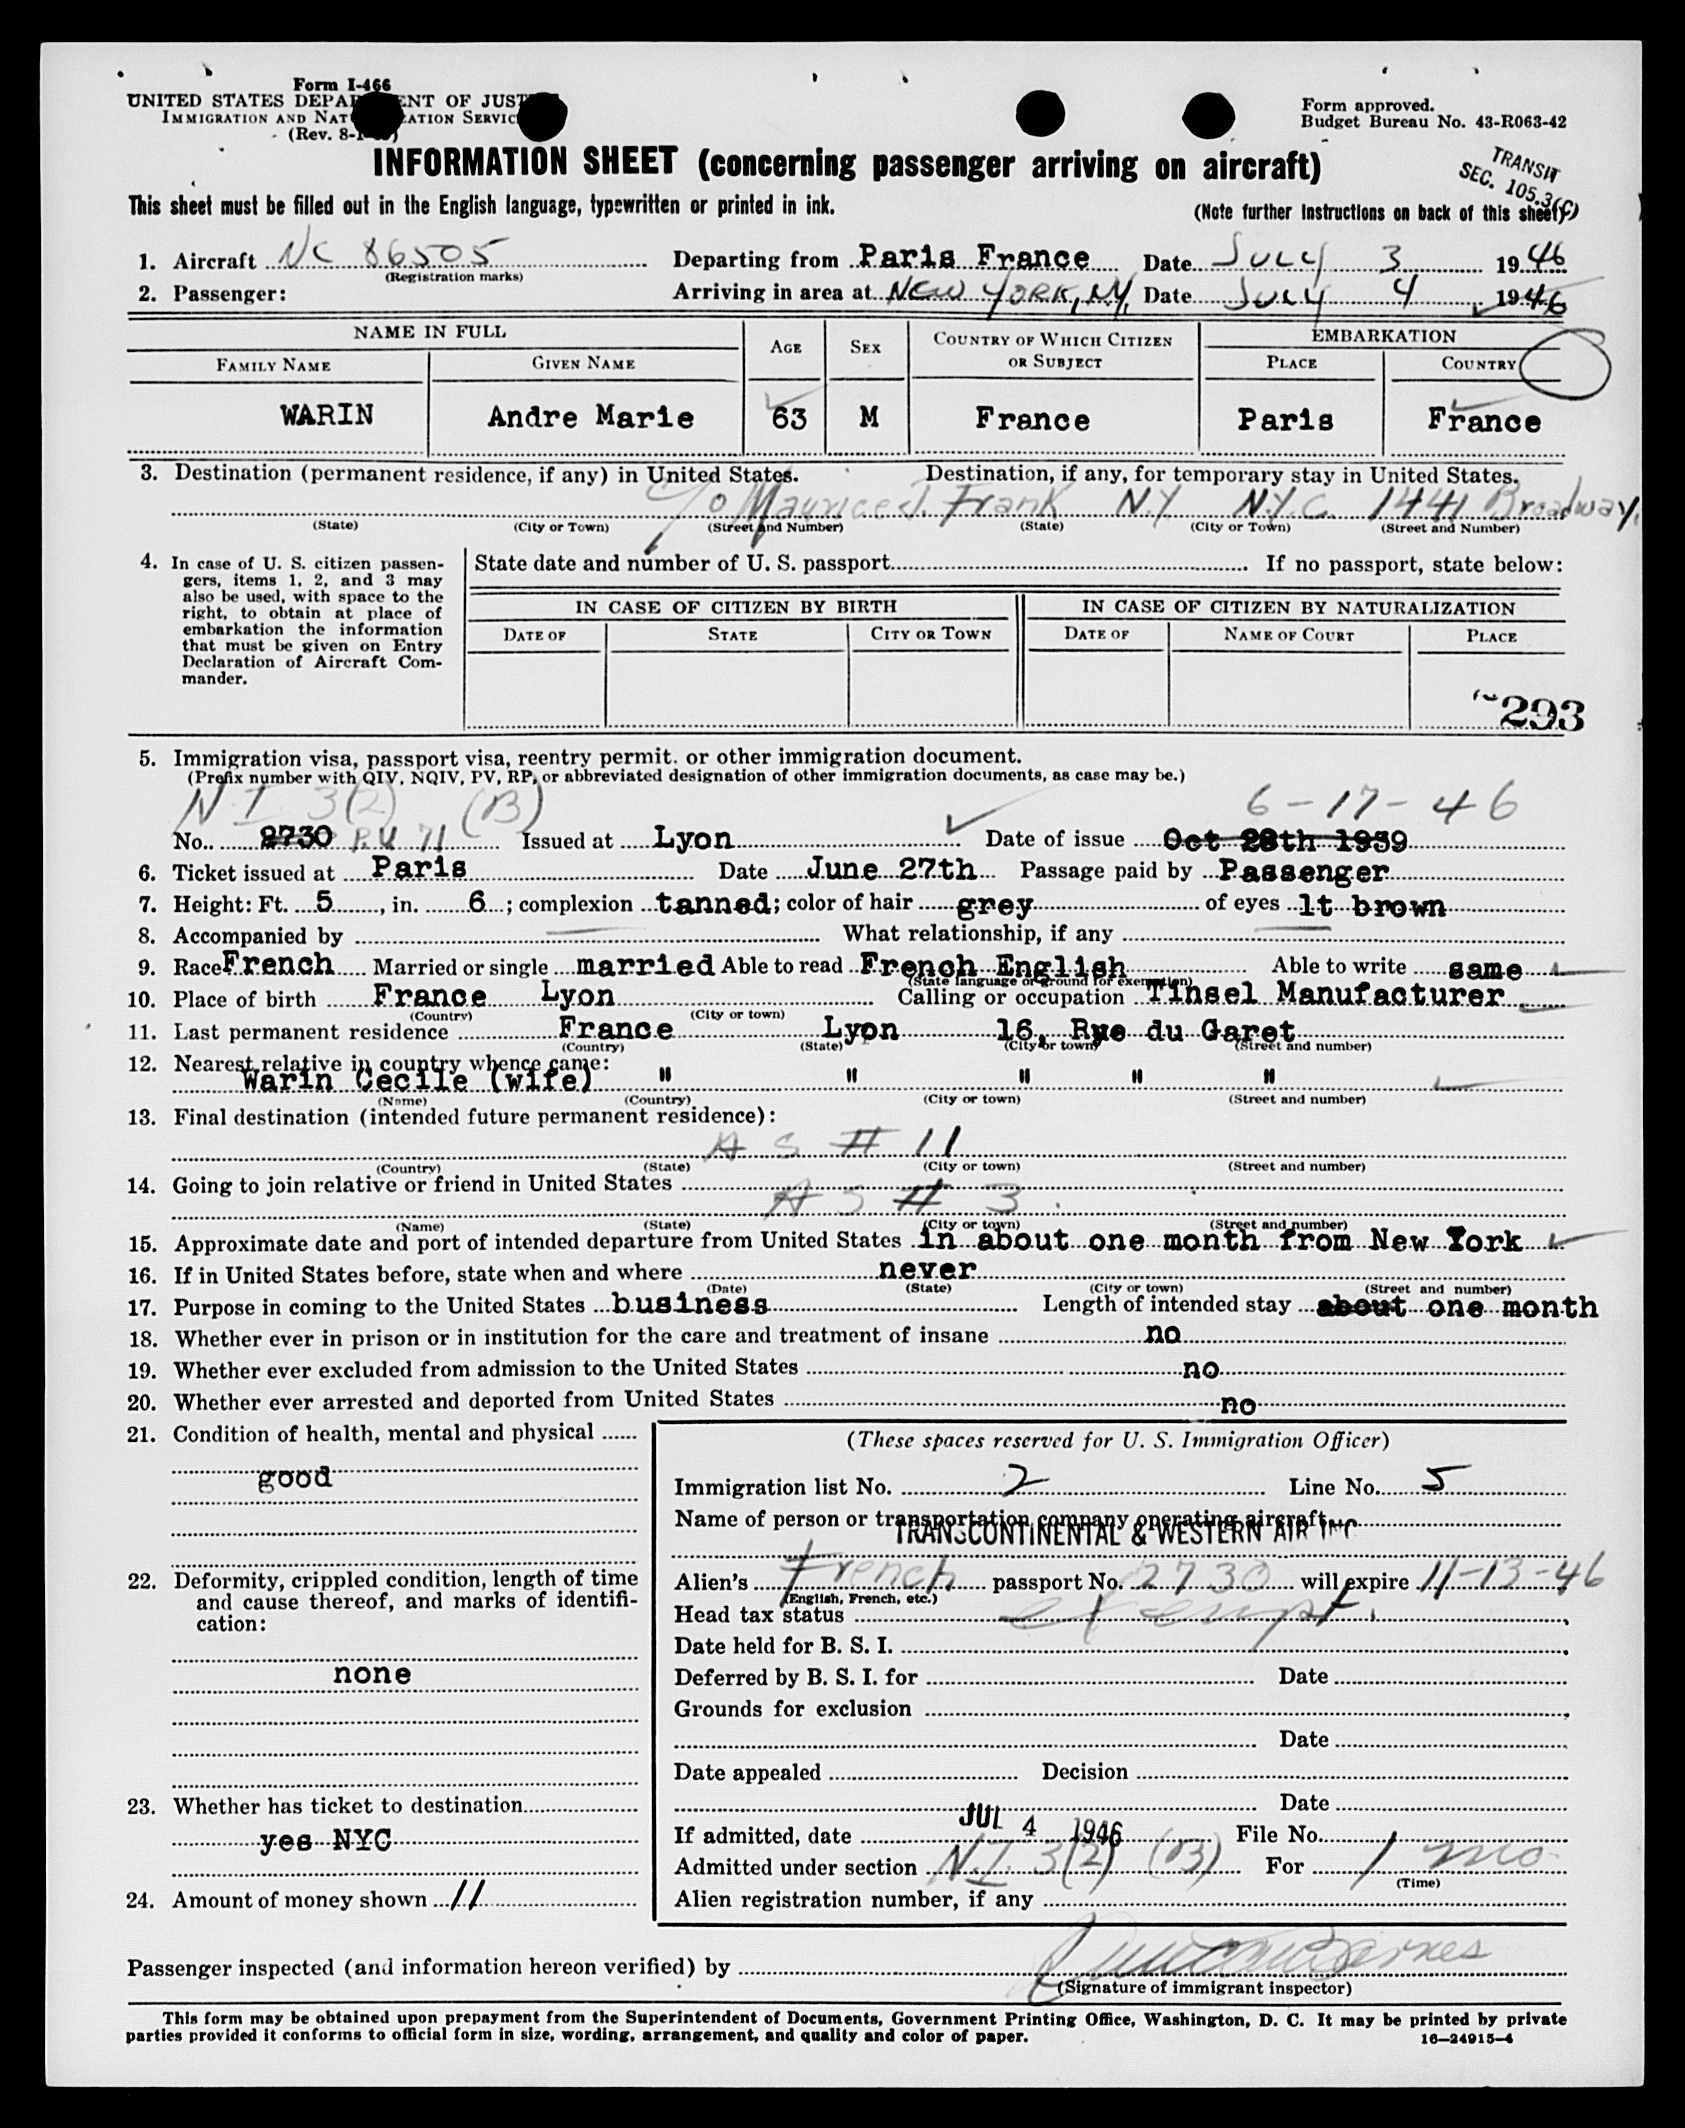 Form I-466
UNITED STATES DEPARTMENT OF JUSTICE
IMMIGRATION AND NATURALIZATION SERVICE
(Rev. 8-1-
Form approved.
Budget Bureau No. 43-R063-42
INFORMATION SHEET (concerning passenger arriving on aircraft)
TRANSIT
SEC. 105.3(C)
This sheet must be filled out in the English language, typewritten or printed in ink.
(Note further instructions on back of this sheet)
1. Aircraft NC 86505 Departing from Paris France Date JULY 3 1946
(Registration marks)
2. Passenger: Arriving in area at NEW YORK, NY, Date JULY 4 1946
NAME IN FULL AGE SEX COUNTRY OF WHICH CITIZEN OR SUBJECT EMBARKATION
FAMILY NAME GIVEN NAME PLACE COUNTRY
WARIN Andre Marie 63 M France Paris France
3. Destination (permanent residence, if any) in United States. Destination, if any, for temporary stay in United States.
c/o Maurice J. Frank N.Y. N.Y.C. 1441 Broadway.
(State) (City or Town) (Street and Number) (State) (City or Town) (Street and Number)
4. In case of U. S. citizen passen-
gers, items 1, 2, and 3 may
also be used, with space to the
right, to obtain at place of
embarkation the information
that must be given on Entry
Declaration of Aircraft Com-
mander.
State date and number of U. S. passport If no passport, state below:
IN CASE OF CITIZEN BY BIRTH IN CASE OF CITIZEN BY NATURALIZATION
DATE OF STATE CITY OR TOWN DATE OF NAME OF COURT PLACE
293
5. Immigration visa, passport visa, reentry permit, or other immigration document.
(Prefix number with QIV, NQIV, PV, RP, or abbreviated designation of other immigration documents, as case may be.)
N I 3(2) (B) 6-17-46
No. 2730 P.V 71 Issued at Lyon Date of issue Oct 28th 1939
6. Ticket issued at Paris Date June 27th Passage paid by Passenger
7. Height: Ft. 5, in. 6; complexion tanned; color of hair grey of eyes lt brown
8. Accompanied by What relationship, if any
9. Race French Married or single married Able to read French English Able to write same
(State language or ground for exemption)
10. Place of birth France Lyon Calling or occupation Tinsel Manufacturer
(Country) (City or town)
11. Last permanent residence France Lyon 16, Rue du Garet
(Country) (State) (City or town) (Street and number)
12. Nearest relative in country whence came:
Warin Cecile (wife) " " " " "
(Name) (Country) (City or town) (Street and number)
13. Final destination (intended future permanent residence):
A S # 11
(Country) (State) (City or town) (Street and number)
14. Going to join relative or friend in United States
A S # 3
(Name) (State) (City or town) (Street and number)
15. Approximate date and port of intended departure from United States in about one month from New York
16. If in United States before, state when and where never
(Date) (State) (City or town) (Street and number)
17. Purpose in coming to the United States business Length of intended stay about one month
18. Whether ever in prison or in institution for the care and treatment of insane no
19. Whether ever excluded from admission to the United States no
20. Whether ever arrested and deported from United States no
21. Condition of health, mental and physical
good
22. Deformity, crippled condition, length of time
and cause thereof, and marks of identifi-
cation:
none
23. Whether has ticket to destination
yes NYC
24. Amount of money shown 11
(These spaces reserved for U. S. Immigration Officer)
Immigration list No. 2 Line No. 5
Name of person or transportation company operating aircraft
TRANSCONTINENTAL & WESTERN AIR INC
Alien's French passport No. 2730 will expire 11-13-46
(English, French, etc.)
Head tax status exempt
Date held for B. S. I.
Deferred by B. S. I. for Date
Grounds for exclusion
Date
Date appealed Decision
Date
If admitted, date JUL 4 1946 File No.
Admitted under section N.I. 3(2) (B) For 1 mo
(Time)
Alien registration number, if any
Passenger inspected (and information hereon verified) by Barnes
(Signature of immigrant inspector)
This form may be obtained upon prepayment from the Superintendent of Documents, Government Printing Office, Washington, D. C. It may be printed by private
parties provided it conforms to official form in size, wording, arrangement, and quality and color of paper.
16—24915-4